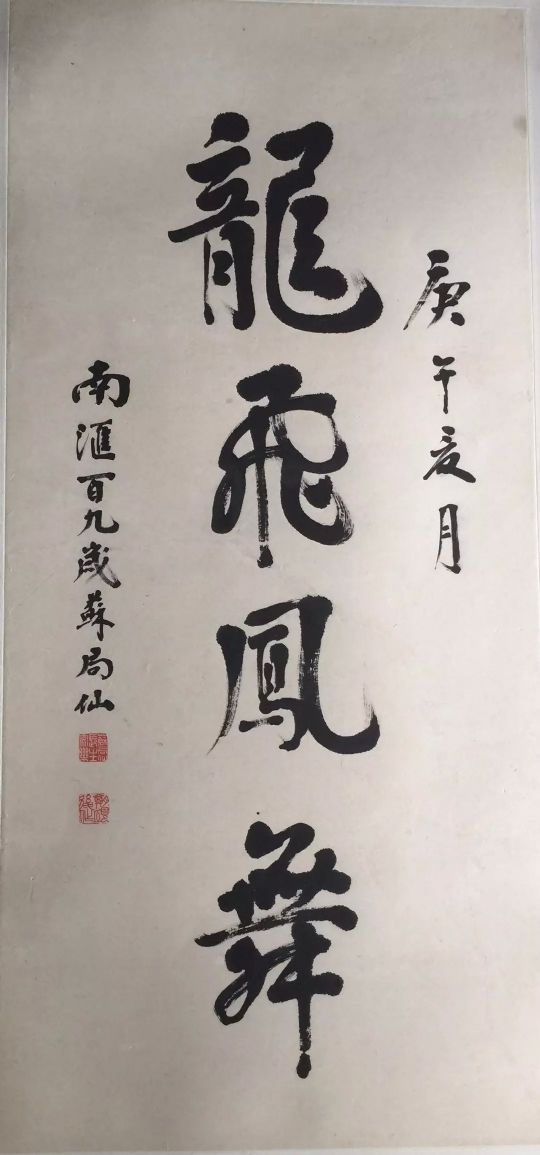 庚午亥月
龍飛鳳舞
南滙百九歲蘇局仙